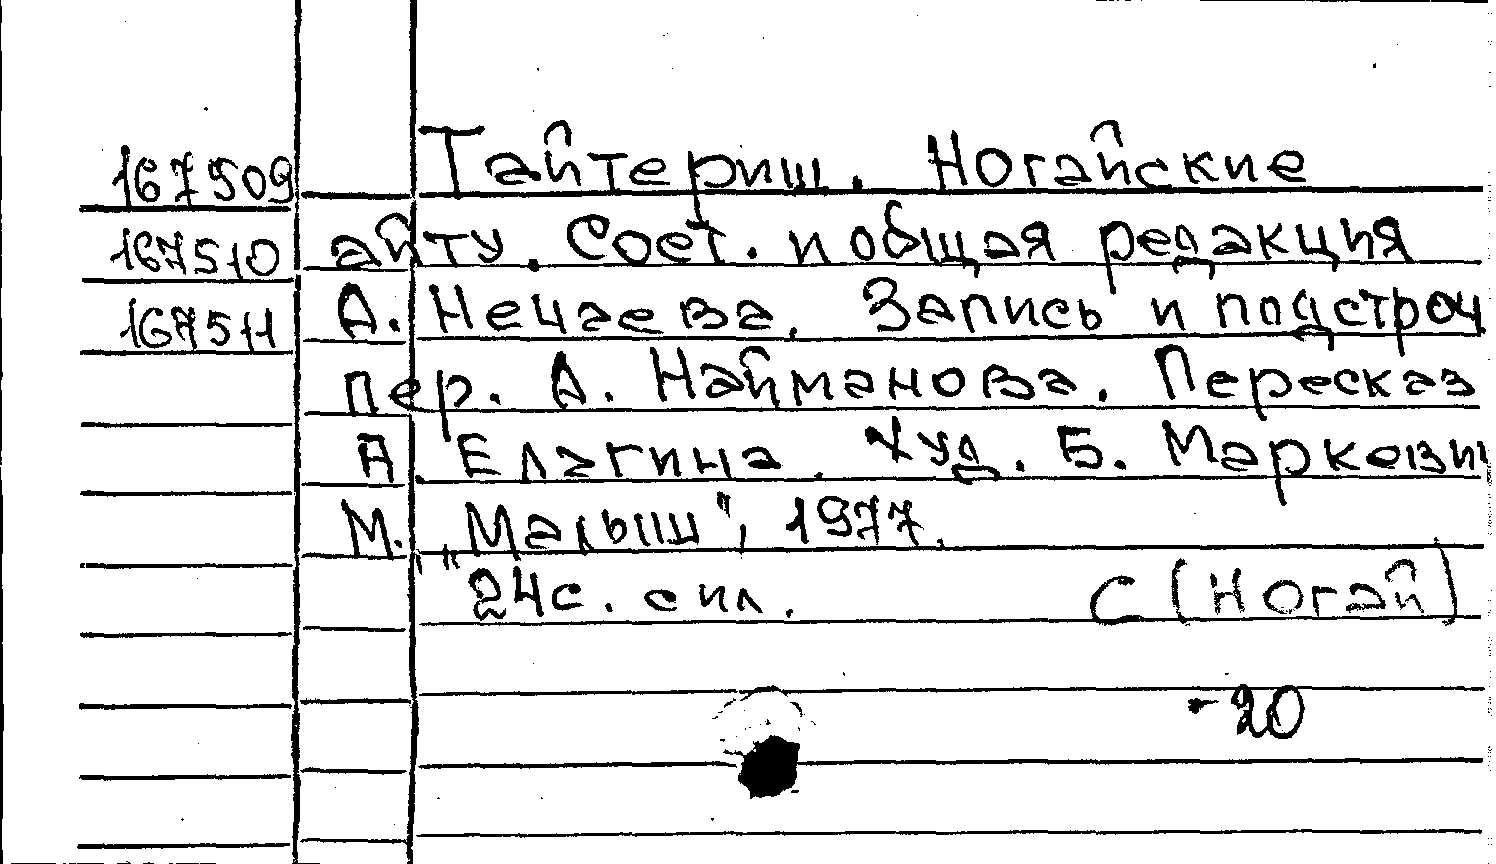 167509 Тайтериш. Ногайские
167510 айту. Сост. и общая редакция
167511 А. Нечаева. Запись и подстроч
пер. А. Найманова. Пересказ
А. Елагина. Худ. Б. Маркевич
М. „Малыш", 1977.
24с. с ил. С (Ногай)
-20